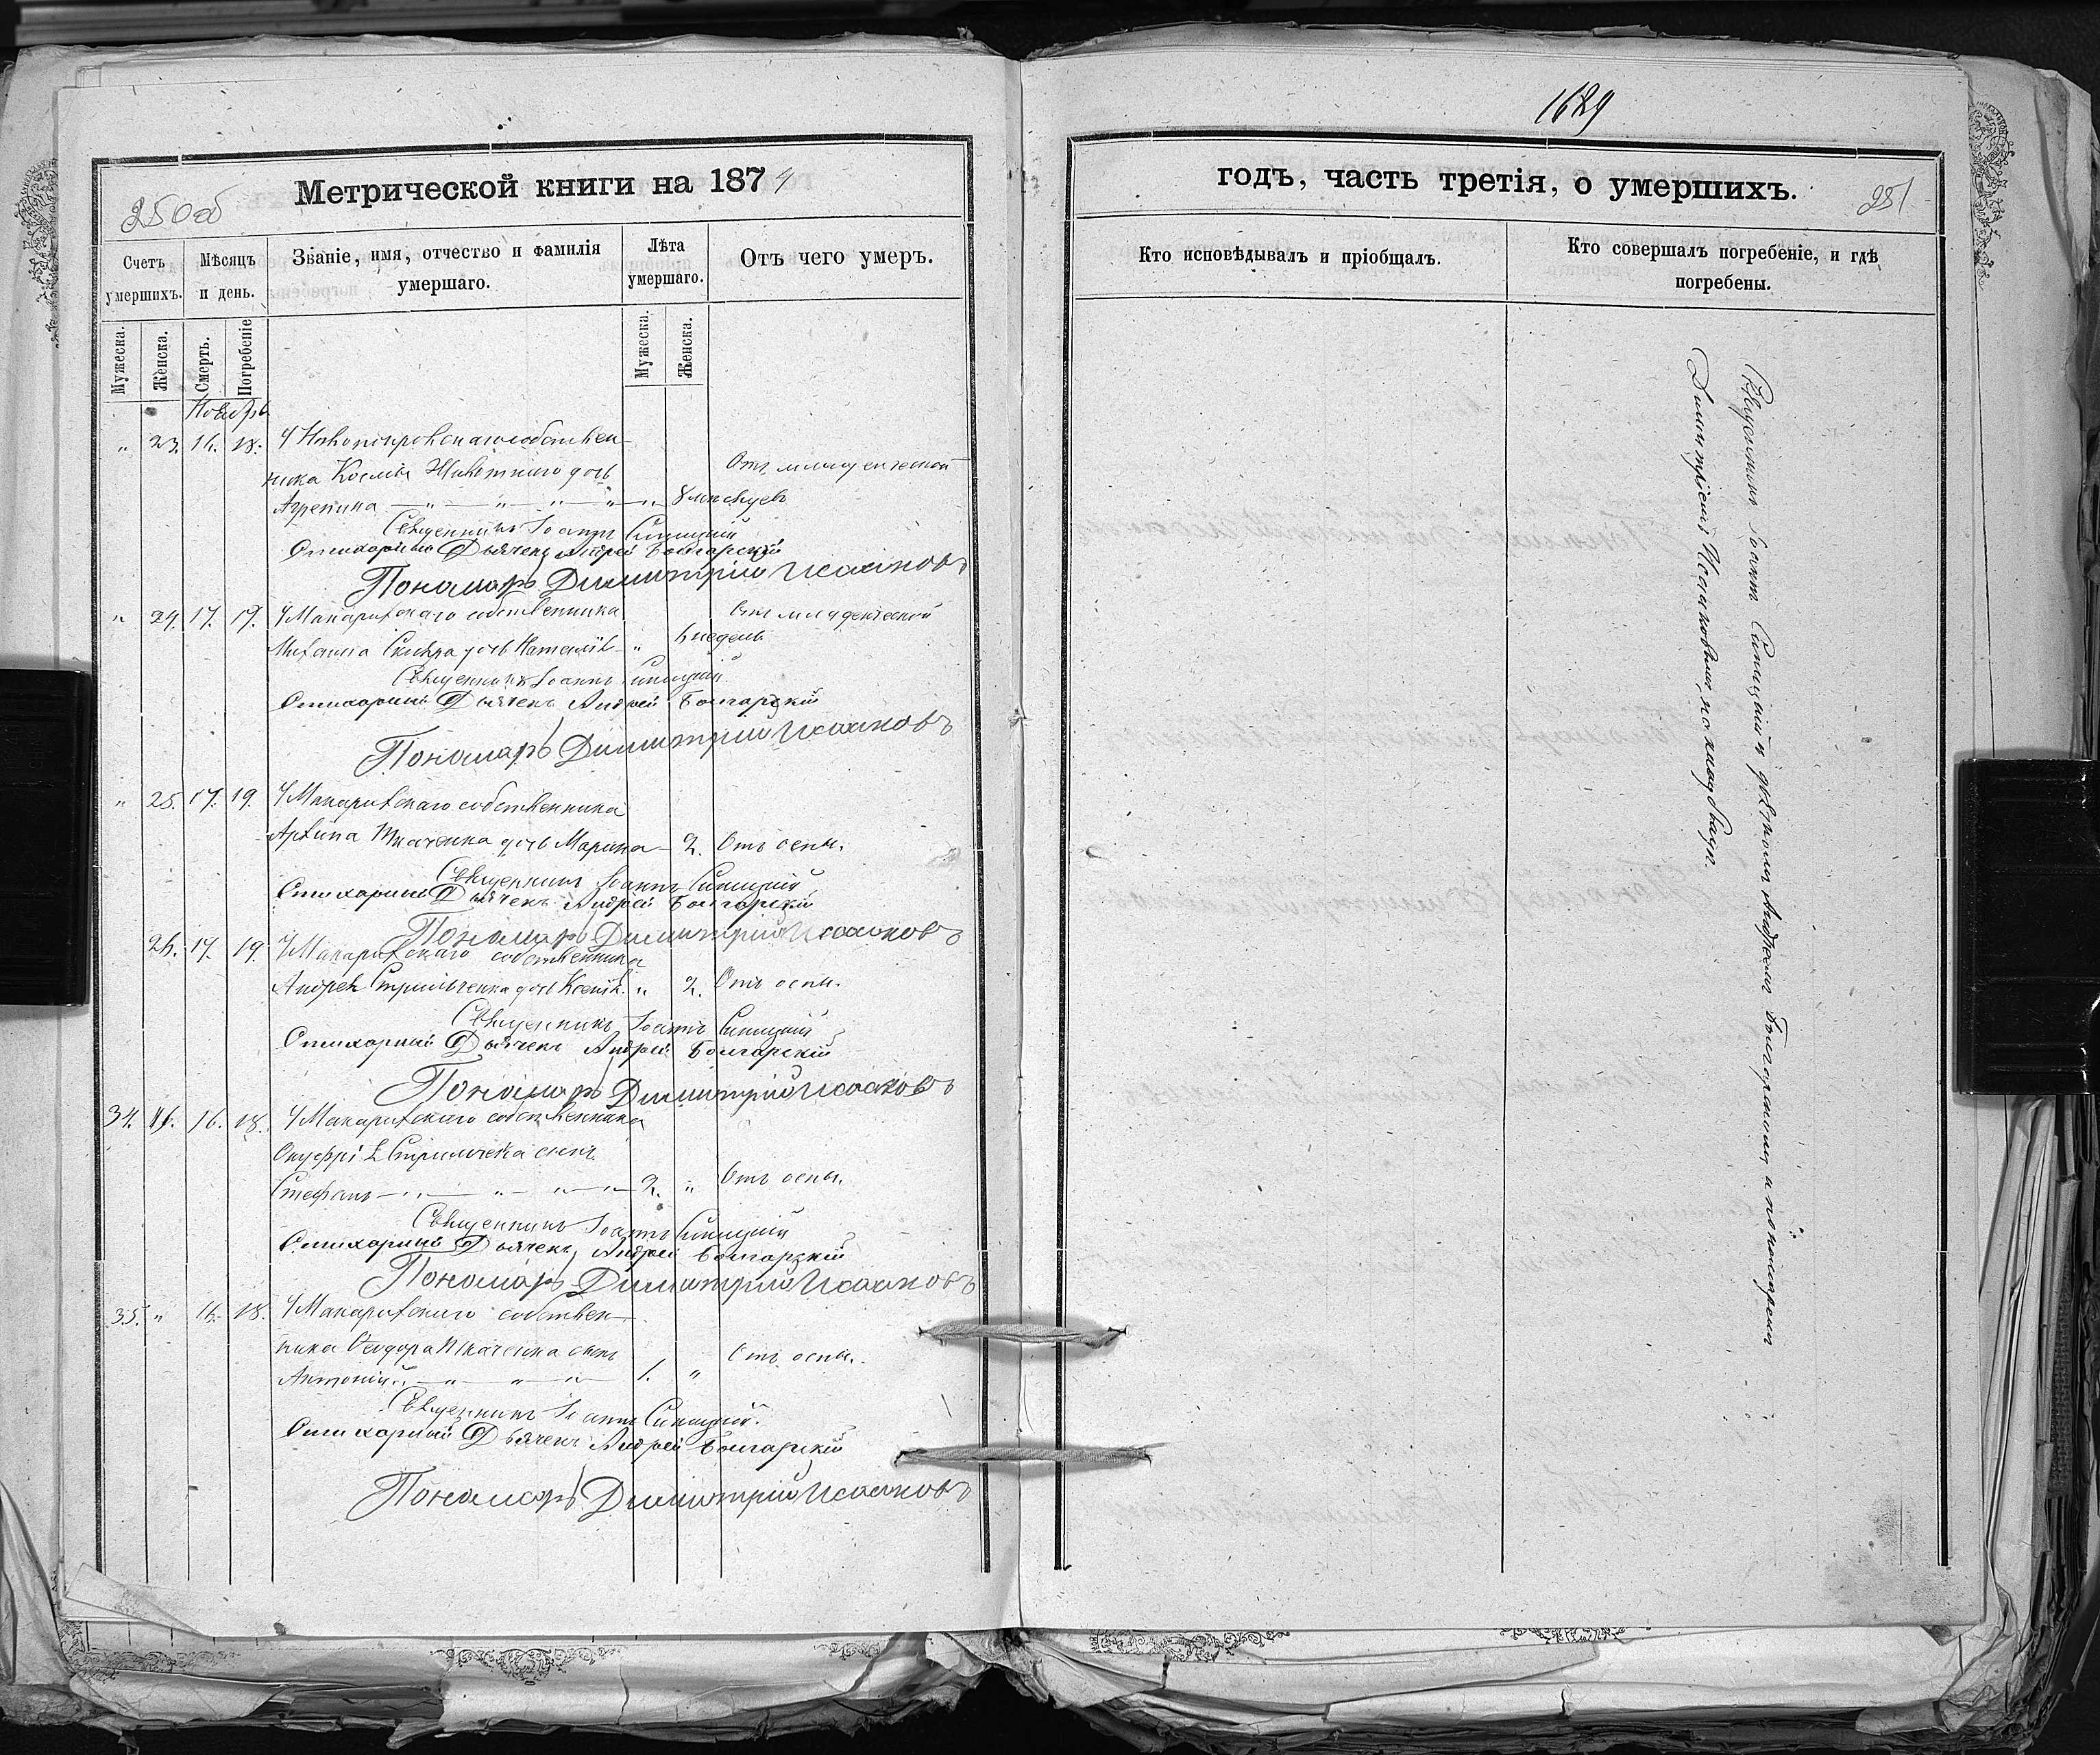 1689
Метрической книги на 1874
250об
Счетъ умершихъ.
Мѣсяцъ и день.
Званіе, имя, отчество и фамилія умершаго.
Лѣта умершаго.
Отъ чего умеръ.
Мужеска.
Женска.
Смерть.
Погребеніе
Мужеска.
Женска.
Ноябрь
" 23. 16. 18. У Новопокровскаго собствен-
ника Космы дочь Отъ младенческой
Агрепина — " — " — " — " 8 мѣсяцевъ
Священникъ Іоаннъ Синицкій
Стихарный Дьячекъ Андрей Болгарскій
Пономарь Димитрій Исааковъ
" 24. 17. 19. У Макарихскаго собственника Отъ младенческой
Михаила дочь Наталія — " 6 недель
Священникъ Іоаннъ Синицкій
Стихарный Дьячекъ Андрей Болгарскій
Пономарь Димитрій Исааковъ
" 25. 17. 19. У Макарихскаго собственника
Архипа Ткаченка дочь Марина — 2. Отъ оспы.
Священникъ Іоаннъ Синицкій
Стихарный Дьячекъ Андрей Болгарскій
Пономарь Димитрій Исааковъ
26. 17. 19. У Макарихскаго собственника
Андрея Стрильченка дочь Ксенія. " 2. Отъ оспы.
Священникъ Іоаннъ Синицкій
Стихарный Дьячекъ Андрей Болгарскій
Пономарь Димитрій Исааковъ
34. 16. 18. У Макарихскаго собственника
Онуфрія сынъ
Стефанъ — " — " — " — " — 2. " Отъ оспы.
Священникъ Іоаннъ Синицкій
Стихарный Дьячекъ Андрей Болгарскій
Пономарь Димитрій Исааковъ
35. " 16. 18. У Макарихскаго собствен-
ника Ѳеодора Ткаченка сынъ Отъ оспы.
Антоній " — " — " — " — 1. "
Священникъ Іоаннъ Синицкій.
Стихарный Дьячекъ Андрей Болгарскій
Пономарь Димитрій Исааковъ
годъ, часть третія, о умершихъ.
251
Кто исповѣдывалъ и пріобщалъ.
Кто совершалъ погребеніе, и гдѣ погребены.
Священникъ Іоаннъ Синицкій съ дьячкомъ Андреемъ Болгарскимъ, и пономаремъ
Димитріемъ Исааковымъ, на кладбищѣ.